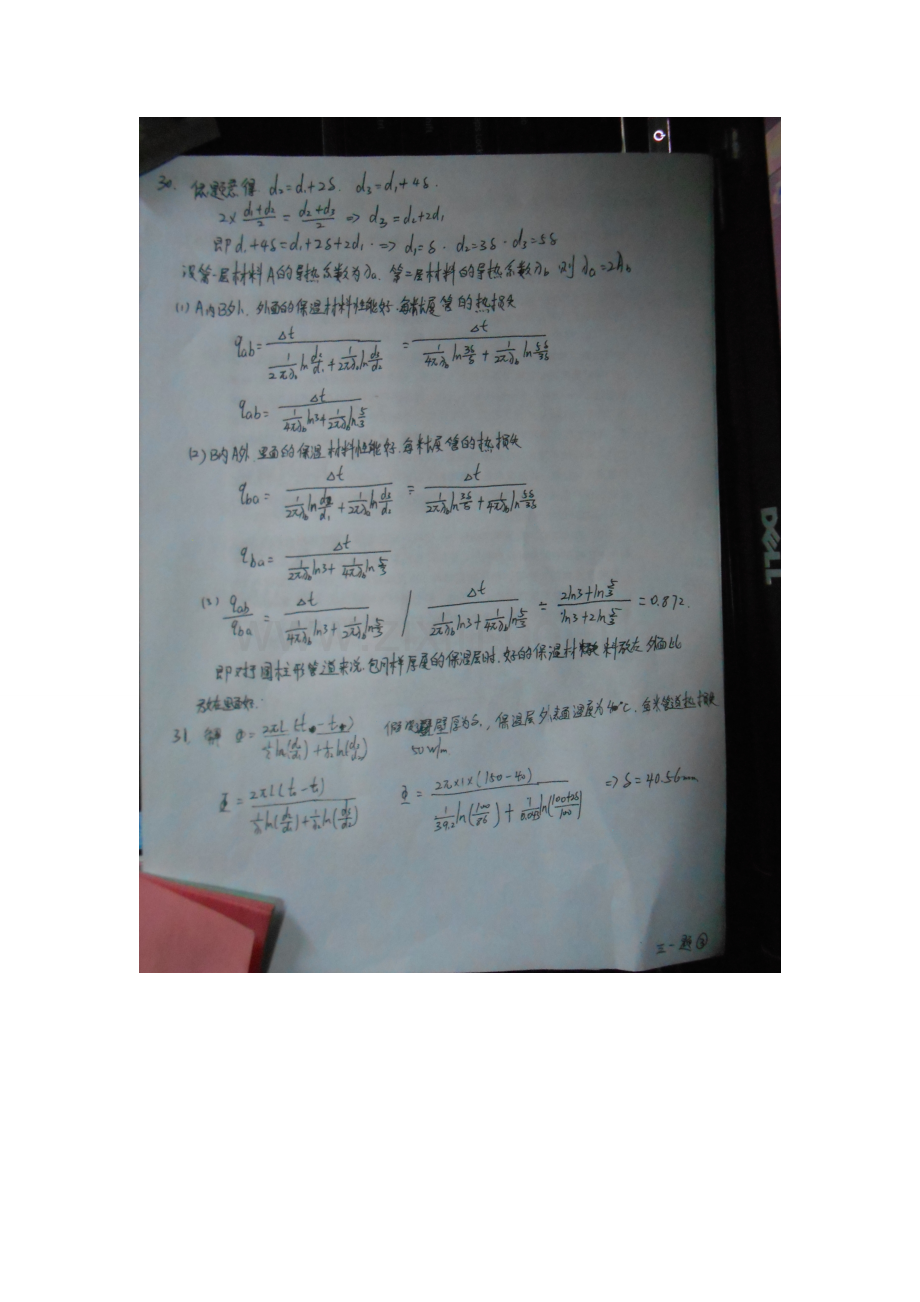 30. 依题意得 d₂=d₁+2δ. d₃=d₁+4δ.
2×(d₁+d₂)/2 = (d₂+d₃)/2 => d₃=d₂+2d₁
即d₁+4δ=d₁+2δ+2d₁. => d₁=δ. d₂=3δ. d₃=5δ
设第一层材料A的导热系数为λa. 第二层材料的导热系数λb 则λa=2λb
(1) A内B外. 外面的保温材料性能好. 每米长管的热损失
qab = Δt/(1/(2πλa) ln d₂/d₁ + 1/(2πλb) ln d₃/d₂) = Δt/(1/(4πλb) ln 3δ/δ + 1/(2πλb) ln 5δ/3δ)
qab = Δt/(1/(4πλb) ln3 + 1/(2πλb) ln 5/3)
(2) B内A外 里面的保温材料性能好. 每米长管的热损失
qba = Δt/(1/(2πλb) ln d₂/d₁ + 1/(2πλa) ln d₃/d₂) = Δt/(1/(2πλb) ln 3δ/δ + 1/(4πλb) ln 5δ/3δ)
qba = Δt/(1/(2πλb) ln3 + 1/(4πλb) ln 5/3)
(3) qab/qba = Δt/(1/(4πλb) ln3 + 1/(2πλb) ln 5/3) / Δt/(1/(2πλb) ln3 + 1/(4πλb) ln 5/3) = (2ln3+ln 5/3)/(ln3+2ln 5/3) = 0.872.
即对于圆柱形管道来说. 包同样厚度的保温层时. 好的保温材料放在外面比
放在里面好.
31. 解 Φ = 2πl(t - t)/(ln(d₂/d₁) + ln(d₃/d₂)) 假设壁厚为δ, 保温层外表面温度为40℃, 每米管道热损失
50w/m
Φ = 2πl(t₀-t)/(ln(d₂/d₁) + ln(d₃/d₂)) Φ = 2π×1×(150-40)/(1/39.2 ln(100/86) + 1/0.043 ln((100+2δ)/100)) => δ=40.56mm
三一题③
DELL